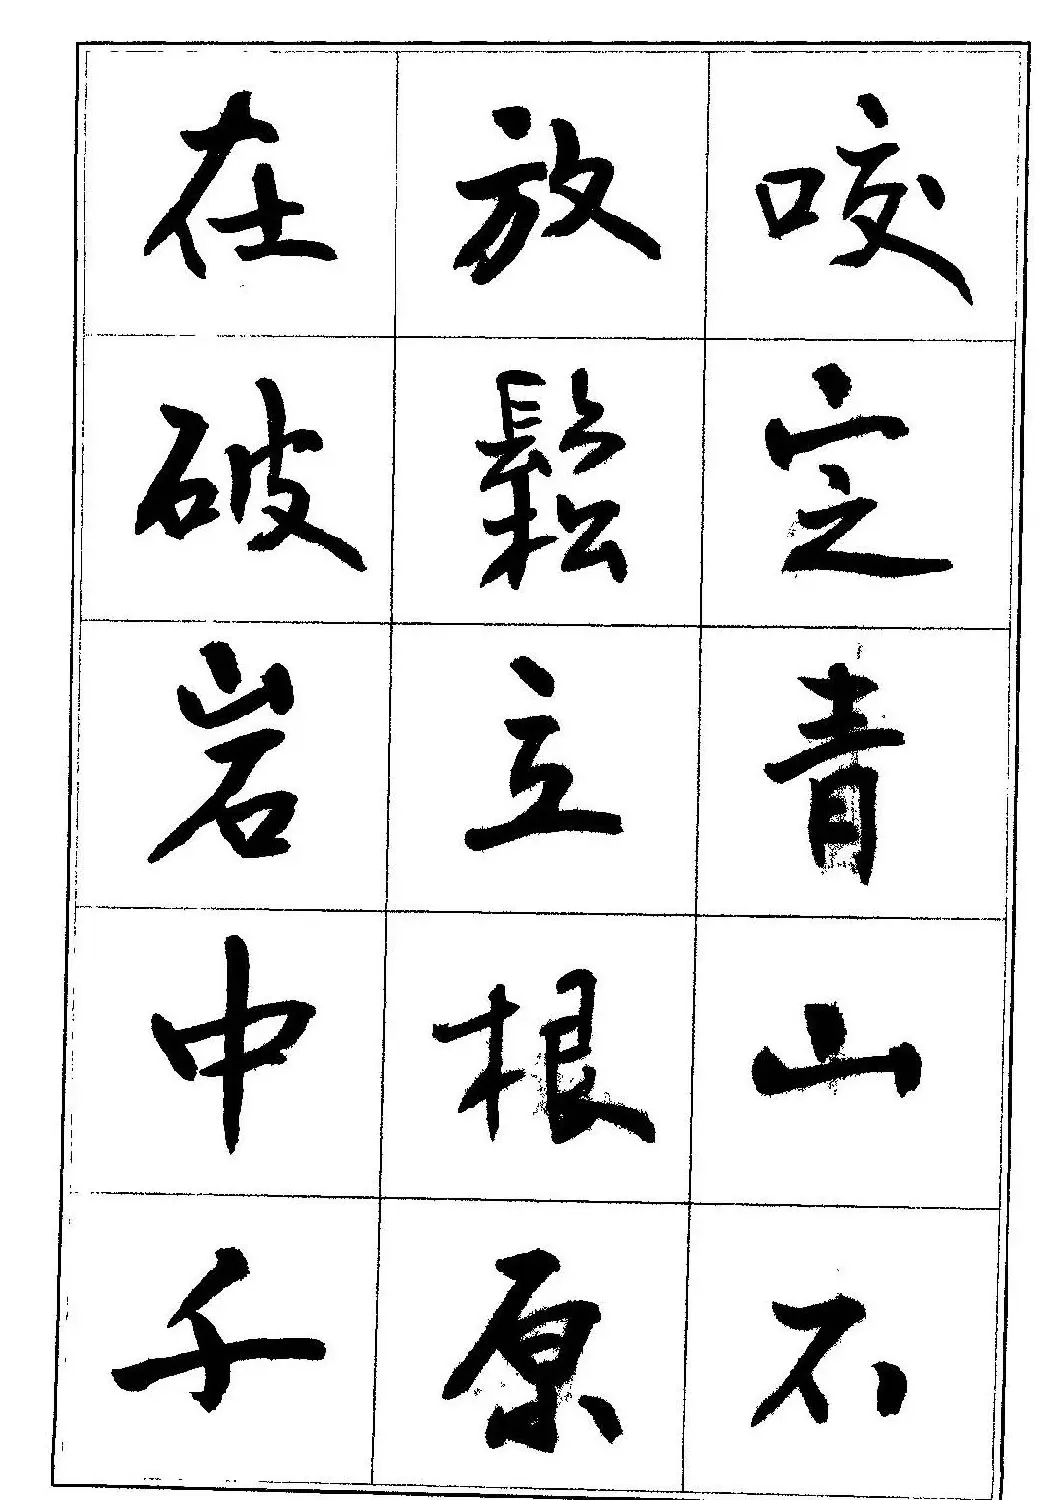 咬定青山不
放鬆立根原
在破岩中千